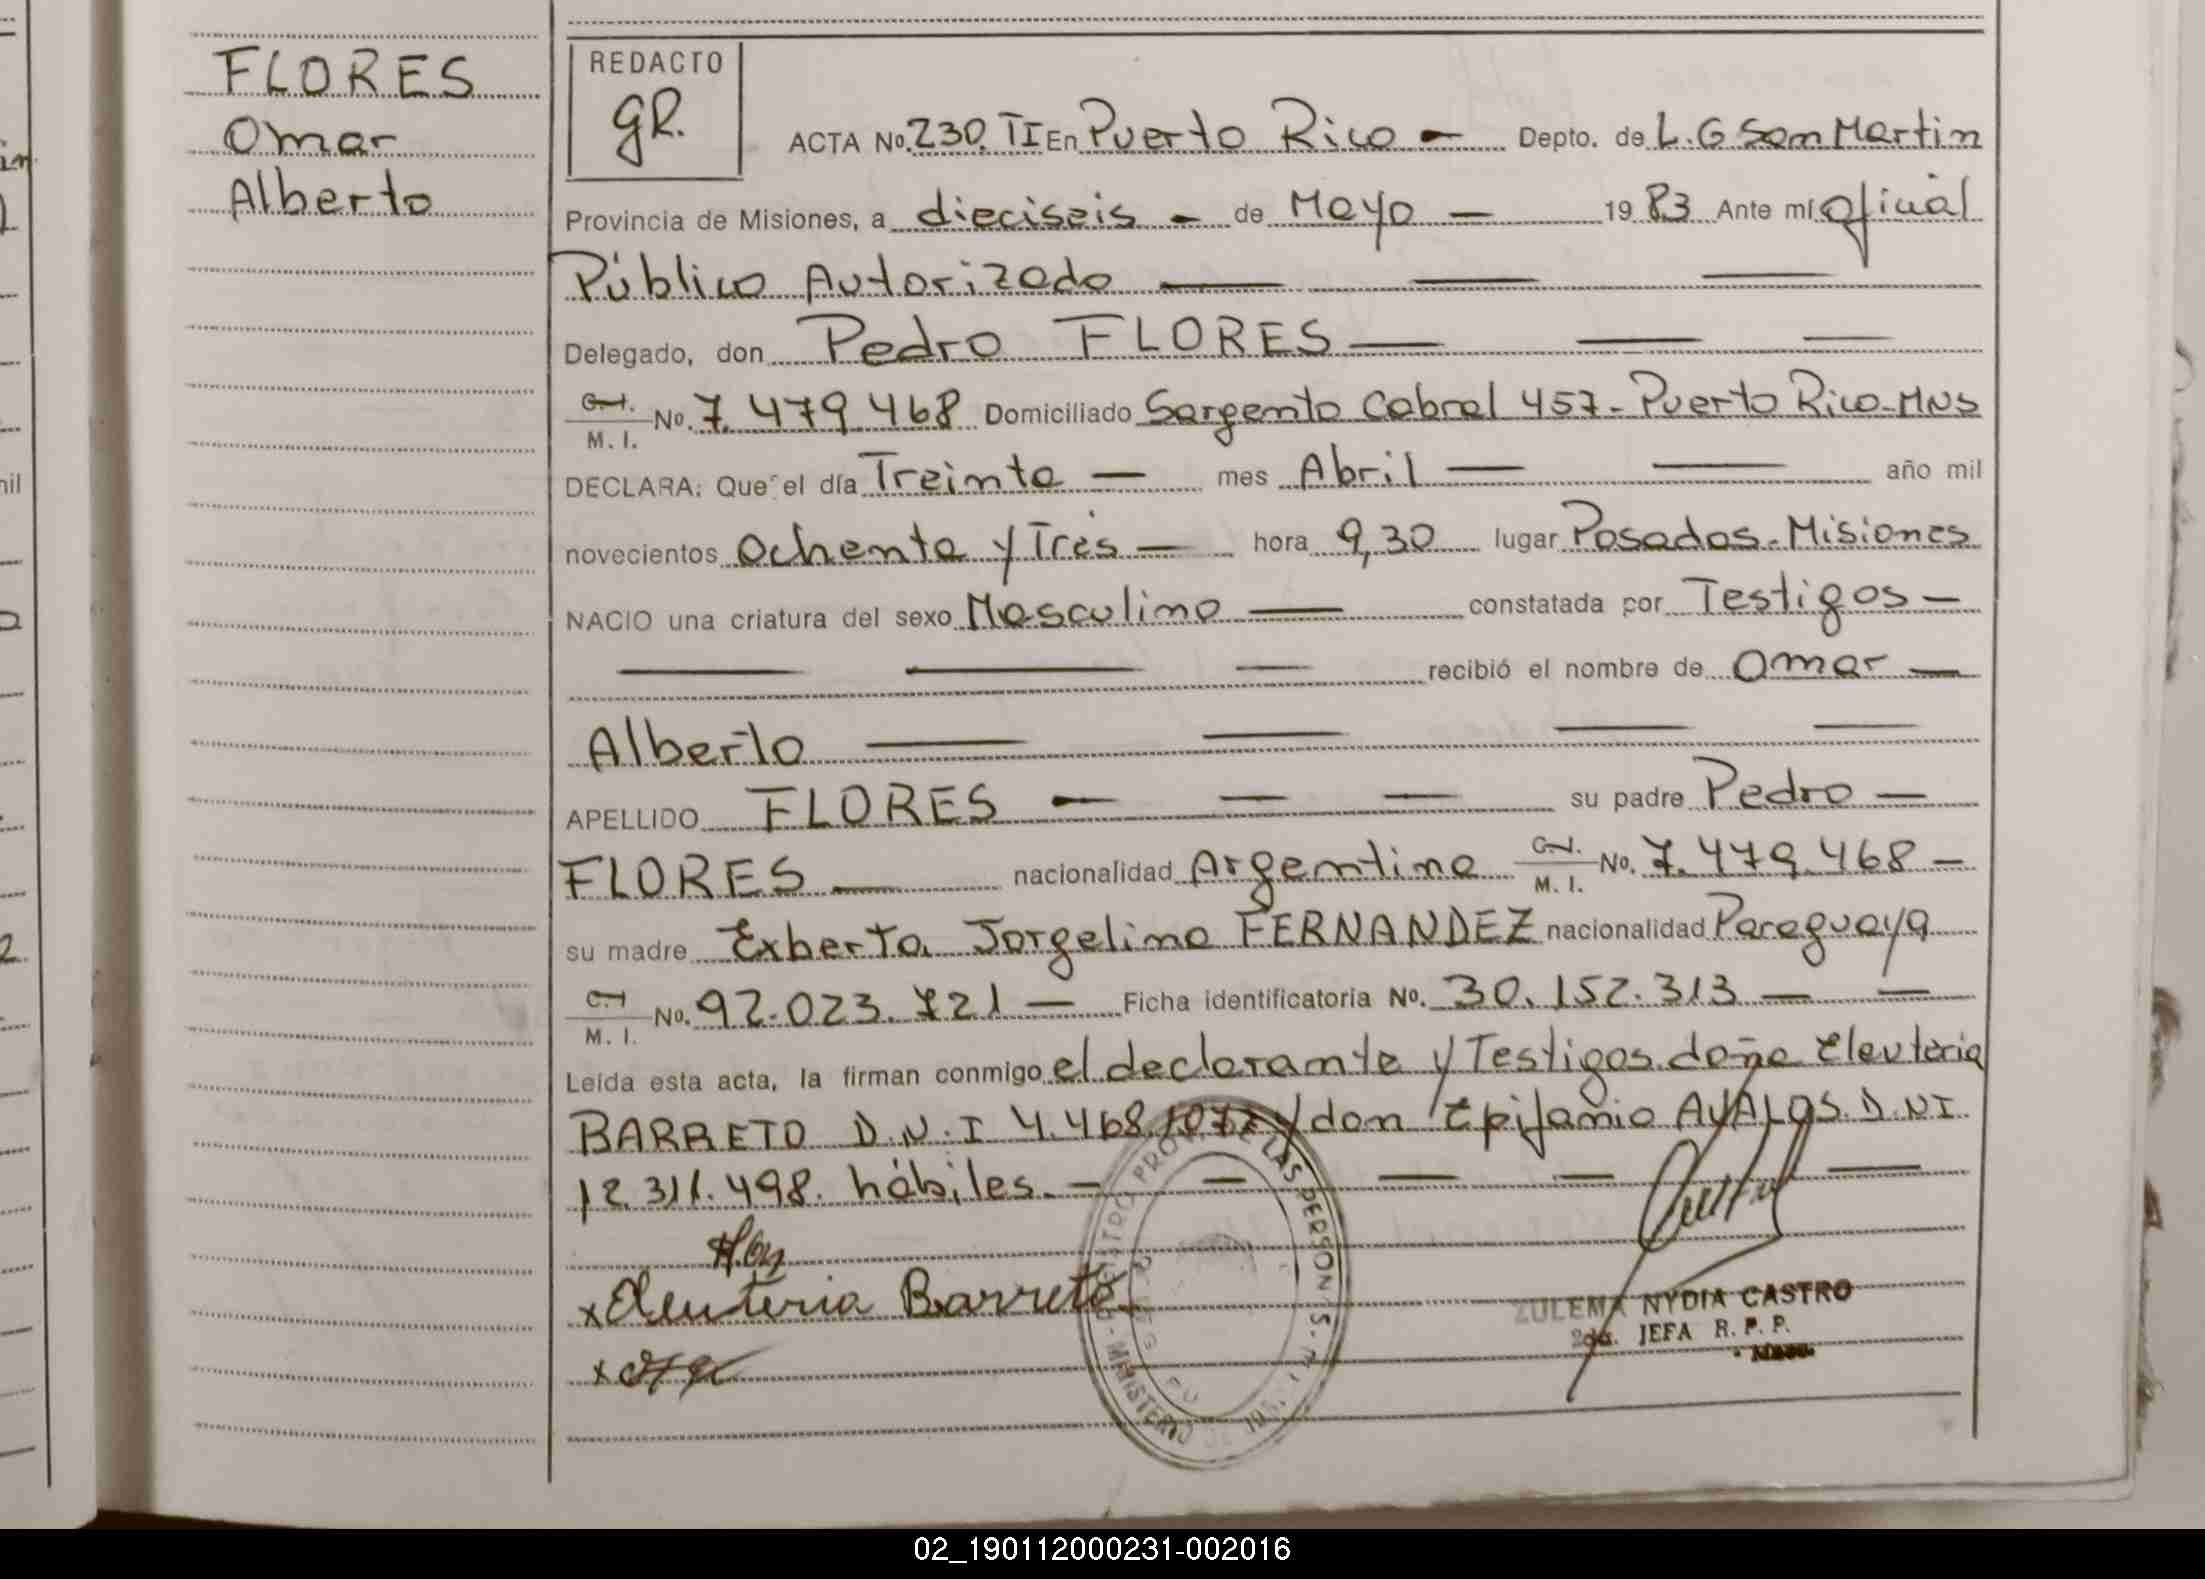 FLORES
Omar
Alberto
REDACTO
GR.
ACTA No. 230. TI En Puerto Rico — Depto. de L. G San Martin
Provincia de Misiones, a dieciseis — de Mayo — 1983 Ante mí oficial
Público Autorizado — — —
Delegado, don Pedro FLORES — — —
C.I. M. I. No. 7.479.468 Domiciliado Sargento Cabral 457 - Puerto Rico - MNS
DECLARA: Que el día Treinta — mes Abril — — año mil
novecientos Ochenta y Tres — hora 9,30 lugar Posadas - Misiones
NACIO una criatura del sexo Masculino — constatada por Testigos —
— — — recibió el nombre de Omar —
Alberto — — — —
APELLIDO FLORES — — — su padre Pedro —
FLORES — nacionalidad Argentina C.I. M. I. No. 7.479.468 —
su madre Exberta Jorgelina FERNANDEZ nacionalidad Paraguaya
C.I M. I. No. 92.023.721 — Ficha identificatoria No. 30.152.313 — —
Leída esta acta, la firman conmigo el declarante y Testigos doña Eleuteria
BARRETO D.N.I 4.468. y don Epifanio AYALOS. D.NI.
12.311.498. hábiles. — — — — —
x Eleuteria Barreto
x
REGISTRO PROV. DE LAS PERSONAS
MINISTERIO
ZULEMA NYDIA CASTRO
2da. JEFA R. P. P.
02_190112000231-002016